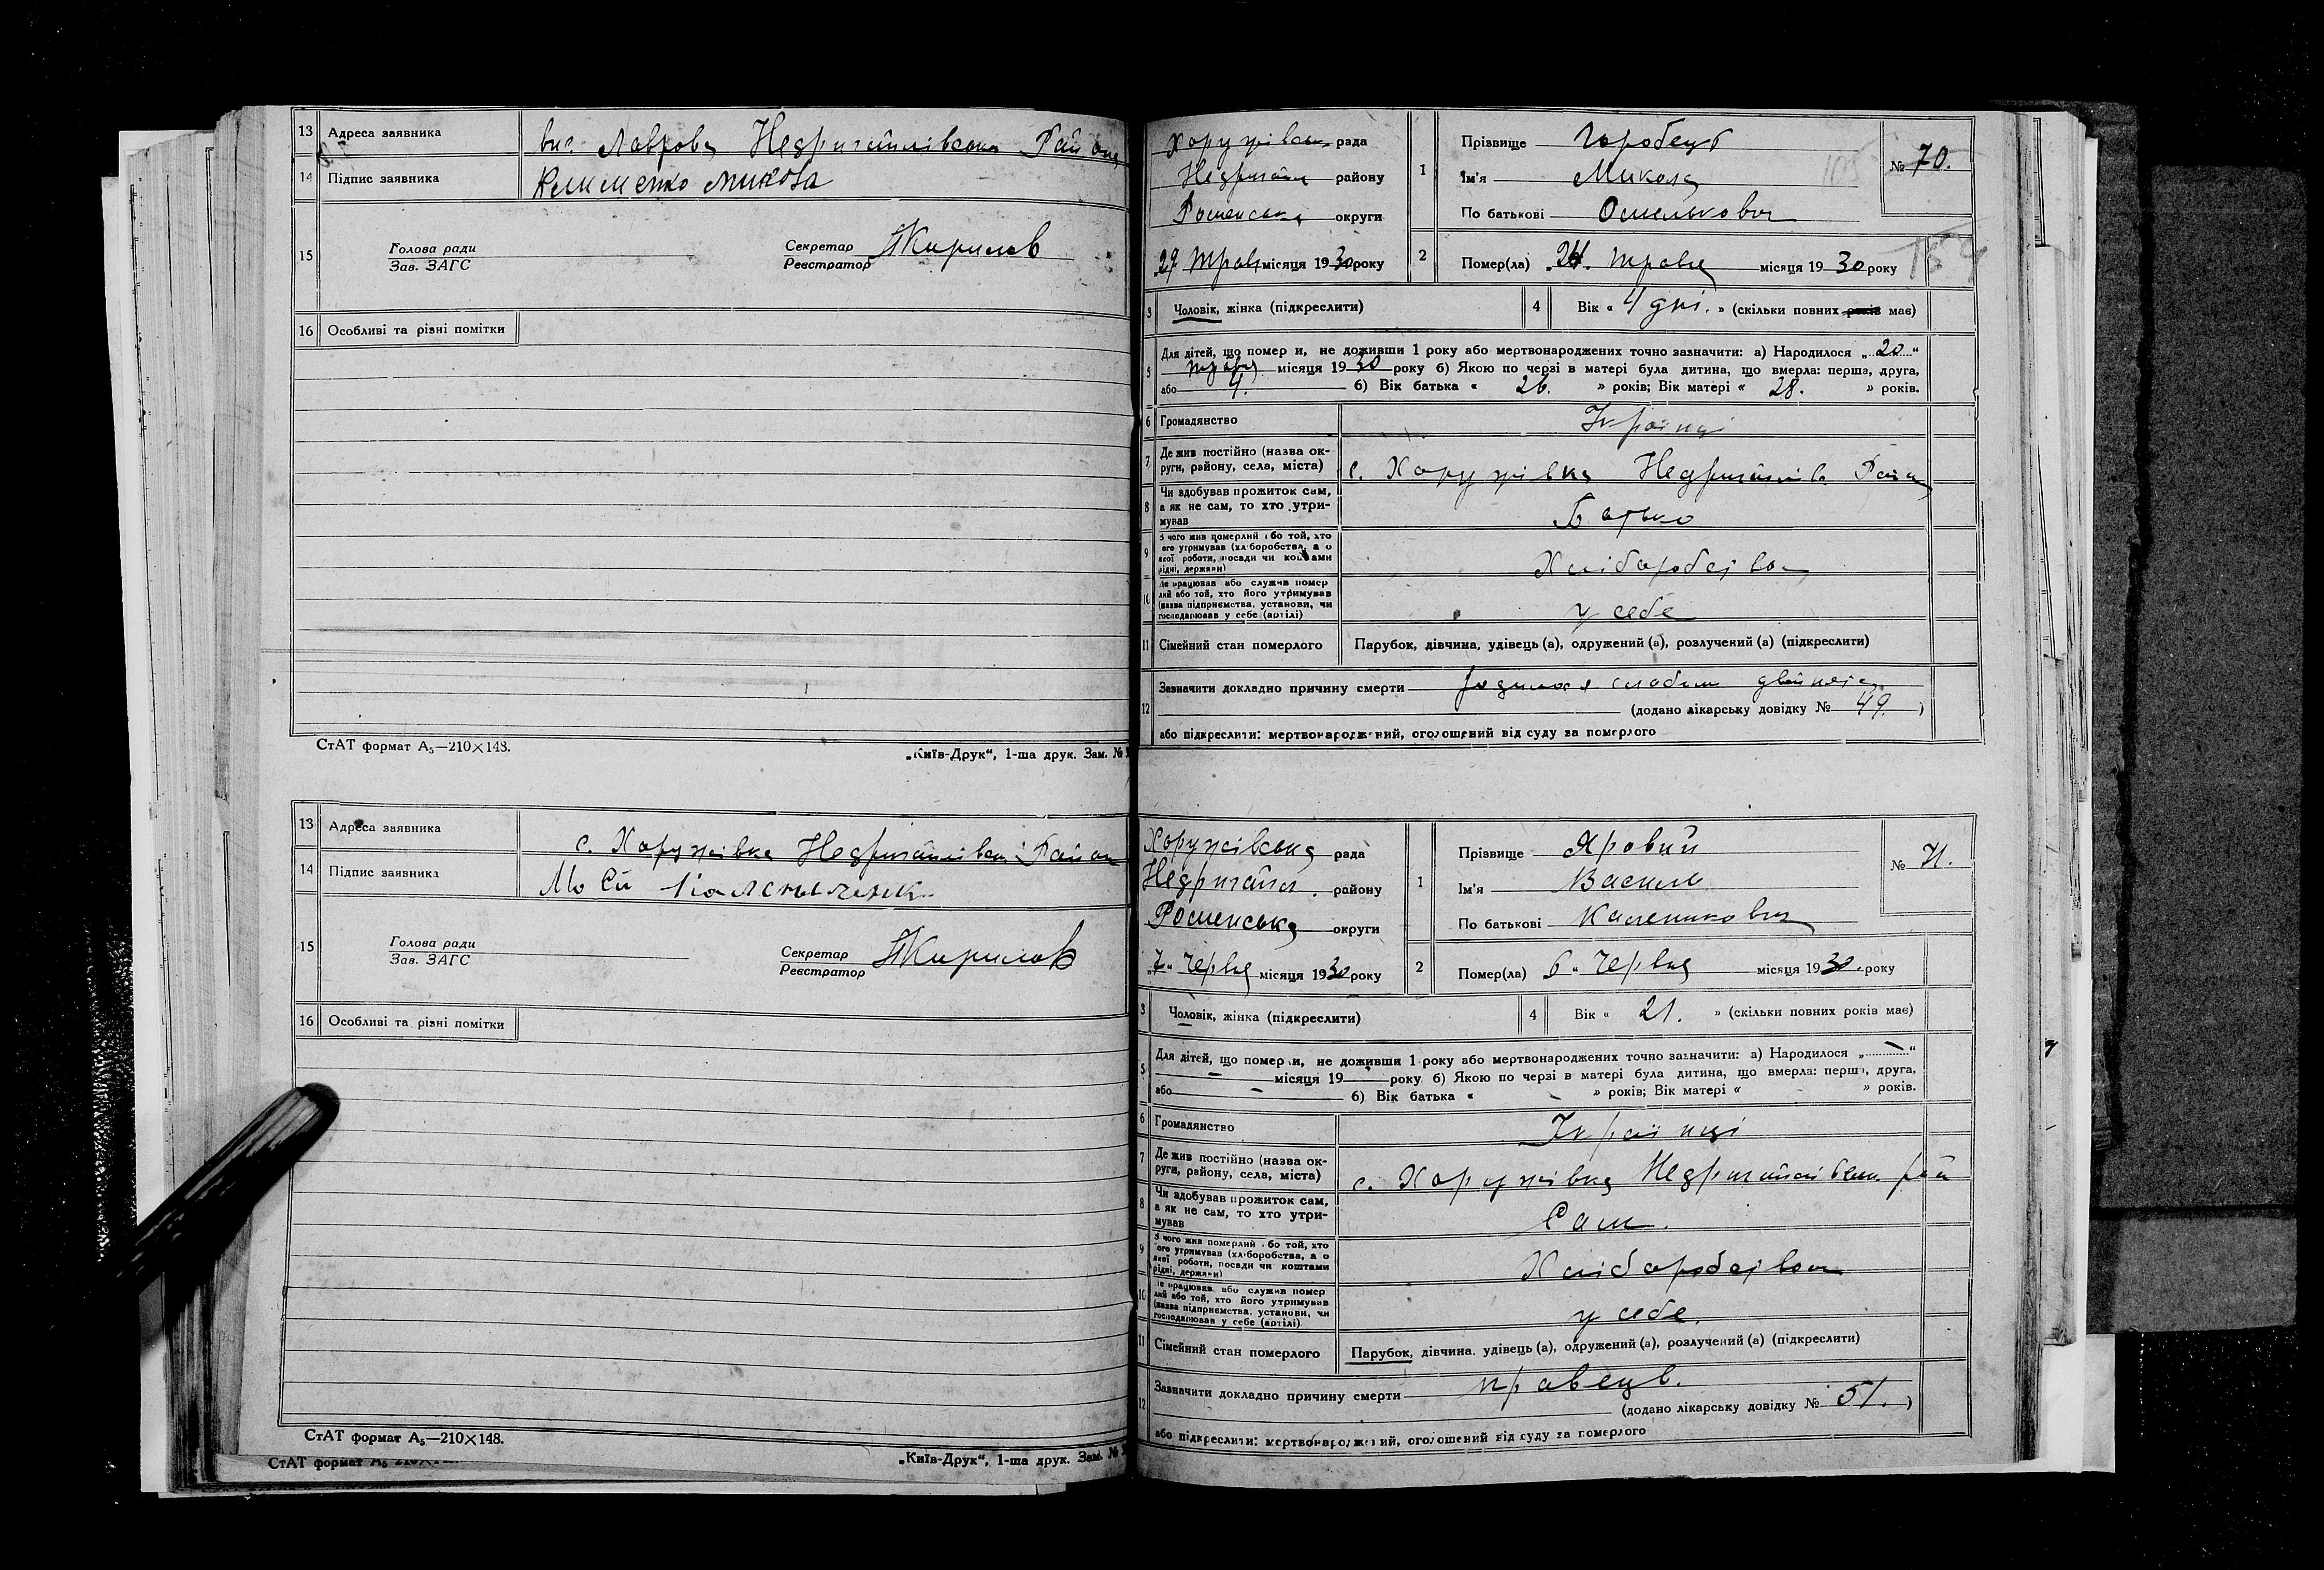 13 Адреса заявника вис. Лаврова Недригайлівська Району
14 Підпис заявника Клименко Микола
15 Голова ради
Зав. ЗАГС
Секретар
Реєстратор
16 Особливі та різні помітки
СтАТ формат А₅—210×148.
„Київ-Друк“, 1-ша друк. Зам. №
13 Адреса заявника с. Хоружівка Недригайлівськ Район
14 Підпис заявника
15 Голова ради
Зав. ЗАГС
Секретар
Реєстратор
16 Особливі та різні помітки
СтАТ формат А₅—210×148.
„Київ-Друк“, 1-ша друк. Зам. №
СтАТ формат
Хоружівськ рада
Недригайл району
Роменська округи
27 Трав місяця 1930 року
1 Прізвище Горобець
Ім'я Микола
По батькові Омелькович
№ 70.
2 Помер(ла) „24. травня місяця 1930 року
154
3 Чоловік, жінка (підкреслити)
4 Вік « 4 дні. » (скільки повних років має)
5 Для дітей, що помер и, не доживши 1 року або мертвонароджених точно зазначити: а) Народилося „20“
травня місяця 1930 року б) Якою по черзі в матері була дитина, що вмерла: перша, друга,
або 4. б) Вік батька « 26. » років; Вік матері « 28. » років.
6 Громадянство Українці
7 Де жив постійно (назва ок-
руги, району, села, міста) с. Хоружівка Недригайлів Район
8 Чи здобував прожиток сам,
а як не сам, то хто утри-
мував Батько
9 З чого жив померлий або той, хто
його утримував (хліборобства, а о
якої роботи, посади чи коштами
рідні, держави) Хліборобство
10 Де працював або служив помер
лий або той, хто його утримував
(назва підприємства, установи, чи
господарював у себе (артілі) у себе
11 Сімейний стан померлого Парубок, дівчина, удівець (а), одружений (а), розлучений (а) (підкреслити)
12 Зазначити докладно причину смерти
(додано лікарську довідку № 49. )
або підкреслити: мертвонароджений, оголошений від суду за померлого
Хоружівська рада
Недригайл. району
Роменська округи
„7“ Червня місяця 1930 року
1 Прізвище Яровий
Ім'я Василь
По батькові Каленикович
№ 71.
2 Помер(ла) 6 „ Червня місяця 1930 року
3 Чоловік, жінка (підкреслити)
4 Вік « 21. » (скільки повних років має)
5 Для дітей, що помер и, не доживши 1 року або мертвонароджених точно зазначити: а) Народилося „—“
— місяця 19 року б) Якою по черзі в матері була дитина, що вмерла: перша, друга,
або — б) Вік батька « - » років; Вік матері « » років.
6 Громадянство Українці
7 Де жив постійно (назва ок-
руги, району, села, міста) с. Хоружівка Недригайлівськ рай
8 Чи здобував прожиток сам,
а як не сам, то хто утри-
мував Сам.
9 З чого жив померлий або той, хто
його утримував (хліборобства, а о
якої роботи, посади чи коштами
рідні, держави) Хліборобство
10 Де працював або служив помер
лий або той, хто його утримував
(назва підприємства, установи, чи
господарював у себе (артілі) у себе.
11 Сімейний стан померлого Парубок, дівчина, удівець (а), одружений (а), розлучений (а) (підкреслити)
12 Зазначити докладно причину смерти правець.
(додано лікарську довідку № 51. )
або підкреслити: мертвонароджений, оголошений від суду за померлого